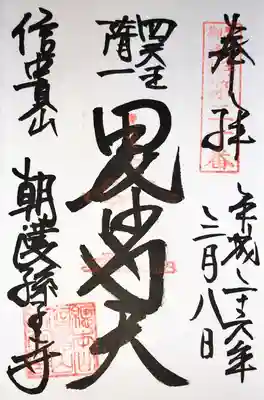 奉拝
平成二十六年
三月八日
四天王
随一
毘沙門天
信貴山
朝護孫子寺